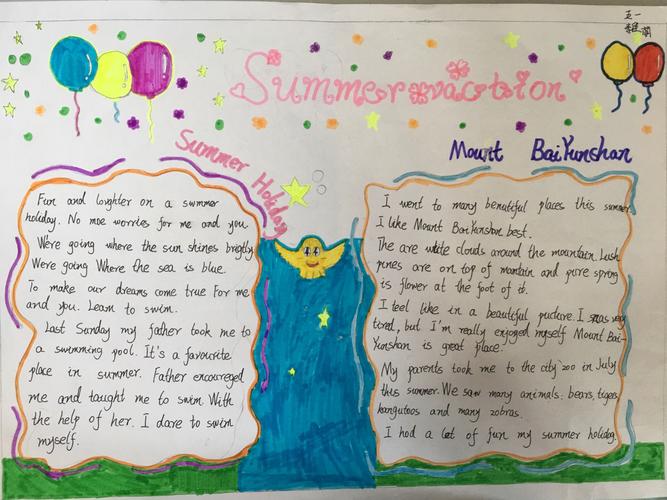 五一
Summer vaction
Summer Holiday
Mount BaiYunshan
Fun and loughter on a swmmer
holiday. No moe worries for me and you.
We're going where the sun shines brigtly
We're going Where the sea is blue.
To make our dreams come true For me
and you. Learn to swim.
Last Sunday my father took me to
a swimming pool. It's a favourite
place in summer. Father encoureged
me and taught me to swim With
the help of her. I dare to swim
myself.
I went to many benautiful places this summer
I like Mount BaiYanshan best.
The are white clouds around the mountain. Lush
pines are on top of mantain and pure spring
is flower at the foot of it.
I feel like in a beautiful picture. I was very
tired, but I'm really enjoyed myself Mount Bai-
Yunshan is great place.
My parents took me to the city zoo in July
this summer. We saw many animals: bears, tiges,
kangutoos and many zobras.
I had a lot of fun my summer holiday.